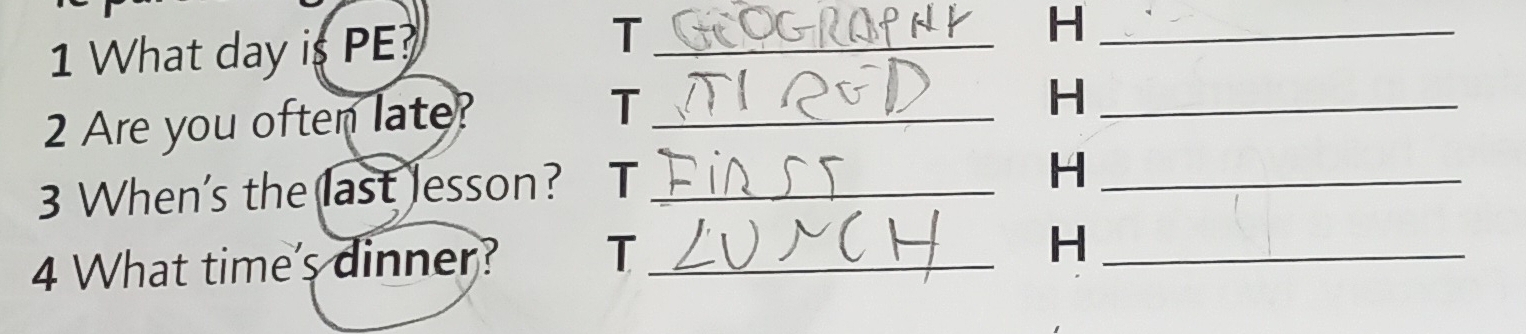 1 What day is PE? T GEOGRAPHY H
2 Are you often late? T TIRED H
3 When's the last lesson? T FIRST H
4 What time's dinner? T LUNCH H